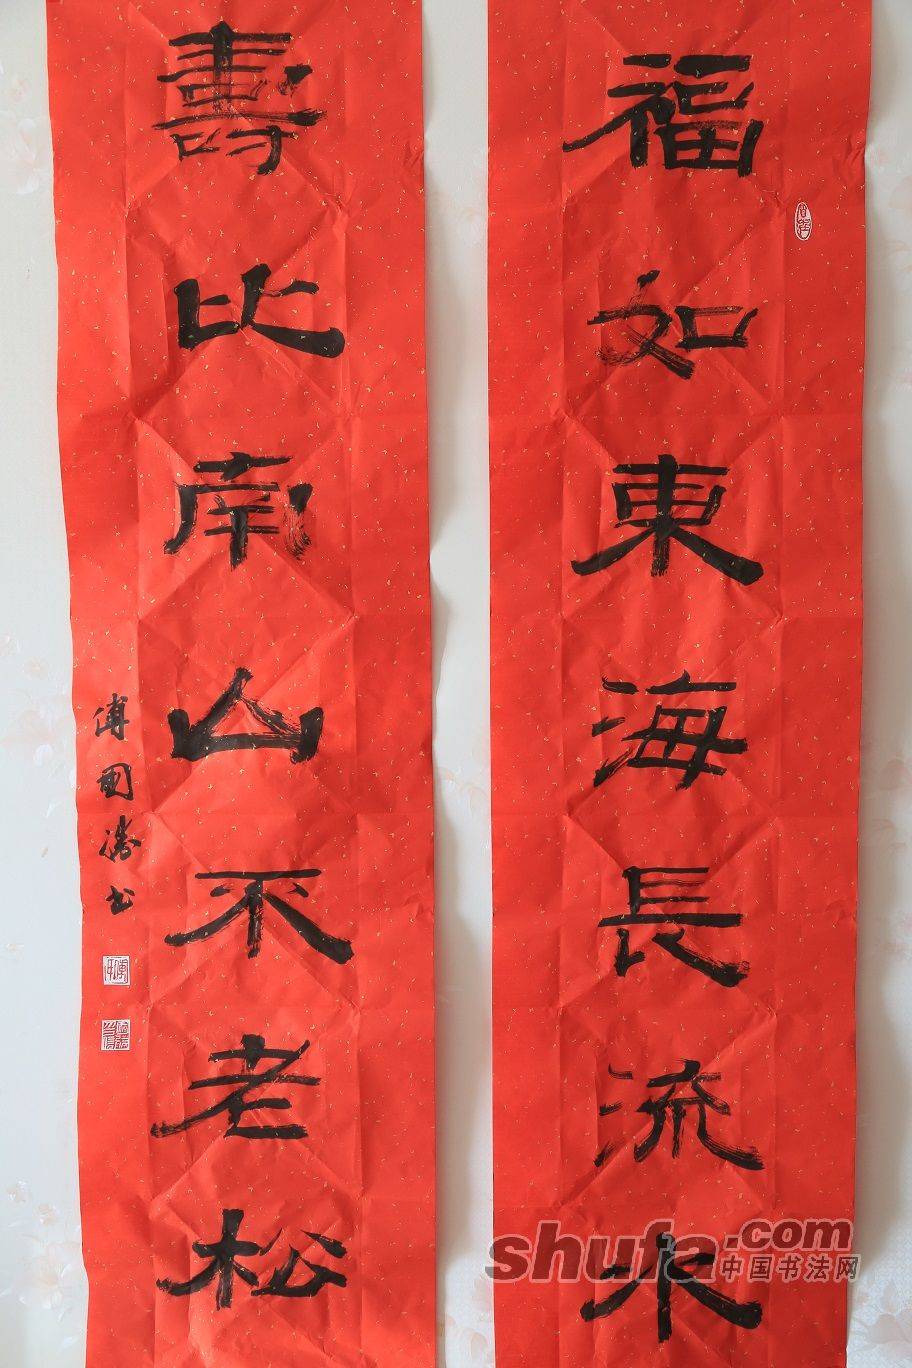 福如東海長流水
壽比南山不老松
傅國勝书
shufa.com
中国书法网